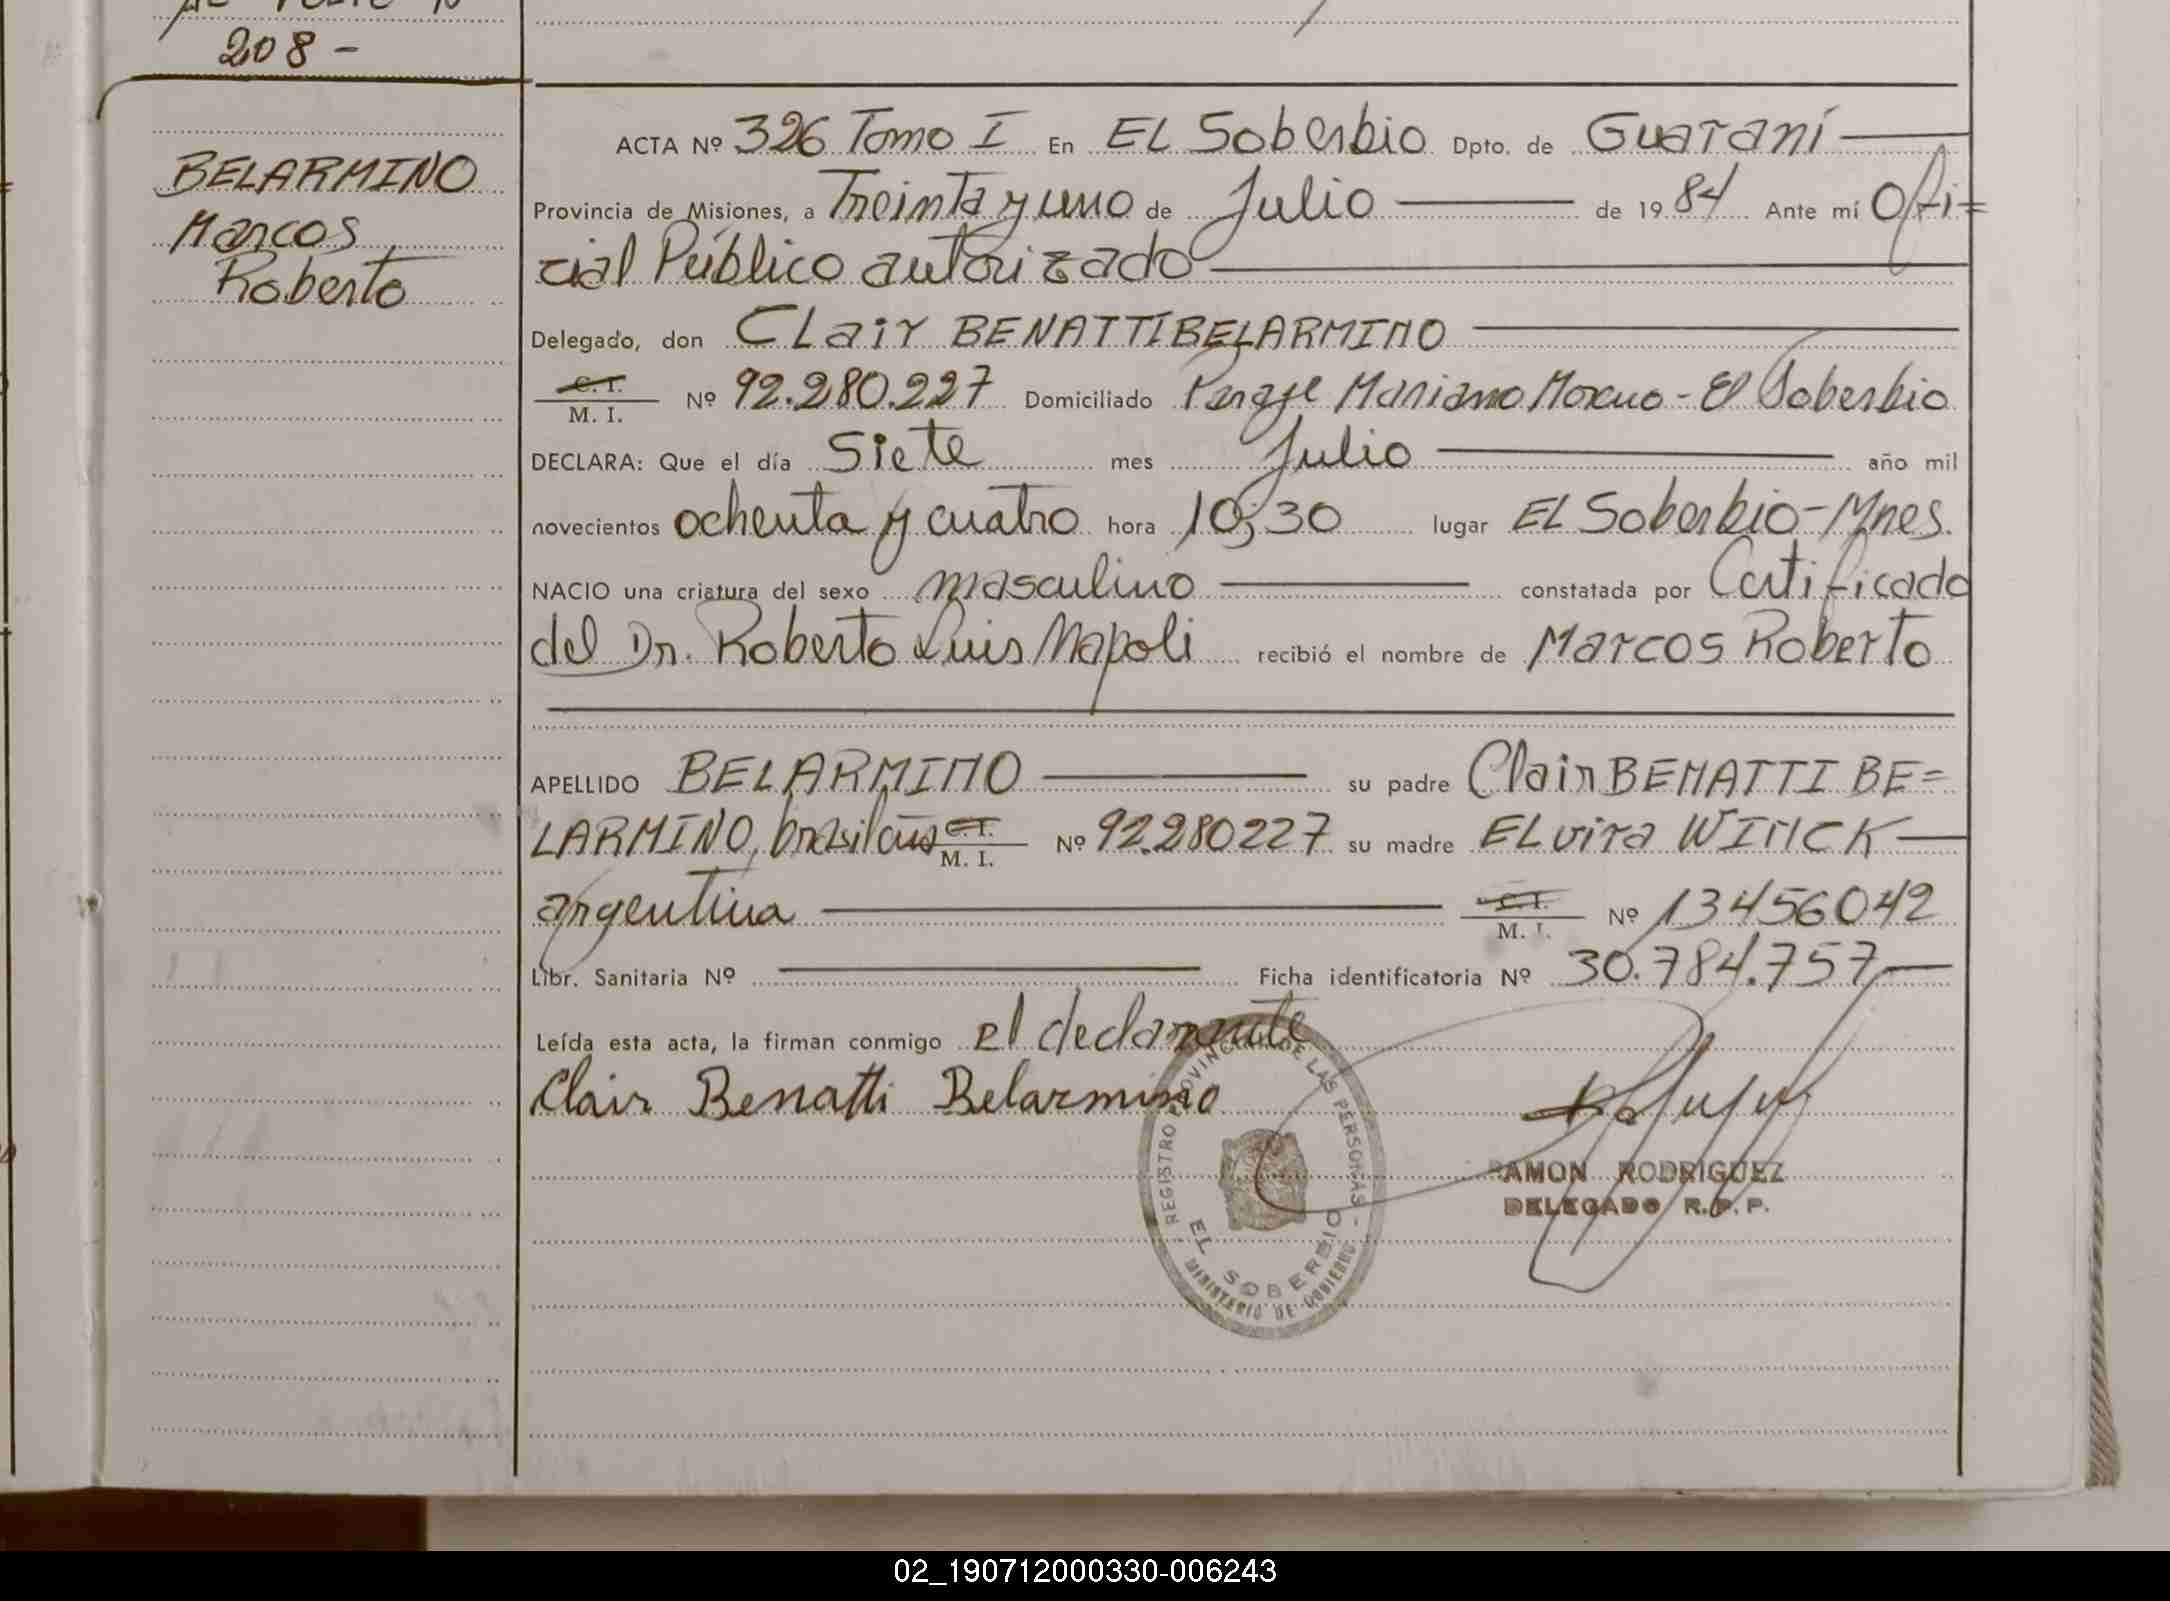 208 -
BELARMINO
Marcos
Roberto
ACTA Nº 326 Tomo I En EL Soberbio Dpto. de Guaraní
Provincia de Misiones, a Treinta y uno de Julio de 19 84 Ante mí Ofi=
cial Público autorizado
Delegado, don CLair BENATTI BELARMINO
C. I.
M. I. Nº 92.280.227 Domiciliado Paraje Mariano Moreno - El Soberbio
DECLARA: Que el día Siete mes Julio año mil
novecientos ochenta y cuatro hora 10;30 lugar EL Soberbio - Mnes.
NACIO una criatura del sexo masculino constatada por Certificado
del Dr. Roberto Luis Napoli recibió el nombre de Marcos Roberto
APELLIDO BELARMINO su padre Clair BENATTI BE=
LARMINO, brasileño C. I. M. I. Nº 92.280227 su madre ELvira WINCK
argentina C. I. M. I. Nº 13456042
Libr. Sanitaria Nº Ficha identificatoria Nº 30.784.757
Leída esta acta, la firman conmigo el declarante
Clair Benatti Belarmino
REGISTRO PROVINCIAL DE LAS PERSONAS -
EL SOBERBIO
MINISTERIO DE GOBIERNO
RAMON RODRIGUEZ
DELEGADO R.P.P.
02_190712000330-006243